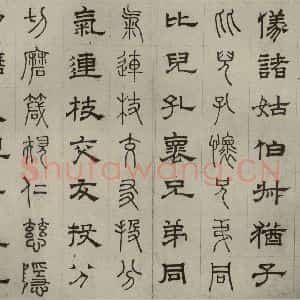 儀諸姑伯叔猶子
比兒孔懷兄弟同
比兒孔褱兄弟同
氣連枝交友投分
氣連枝交友投分
切磨箴規仁慈隱
Shufawang.CN